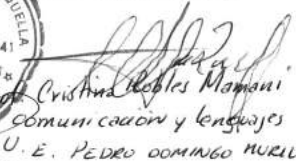 QUELLA
41
Cristina Robles Mamani
comunicación y lenguajes
U. E. PEDRO DOMINGO MURIL